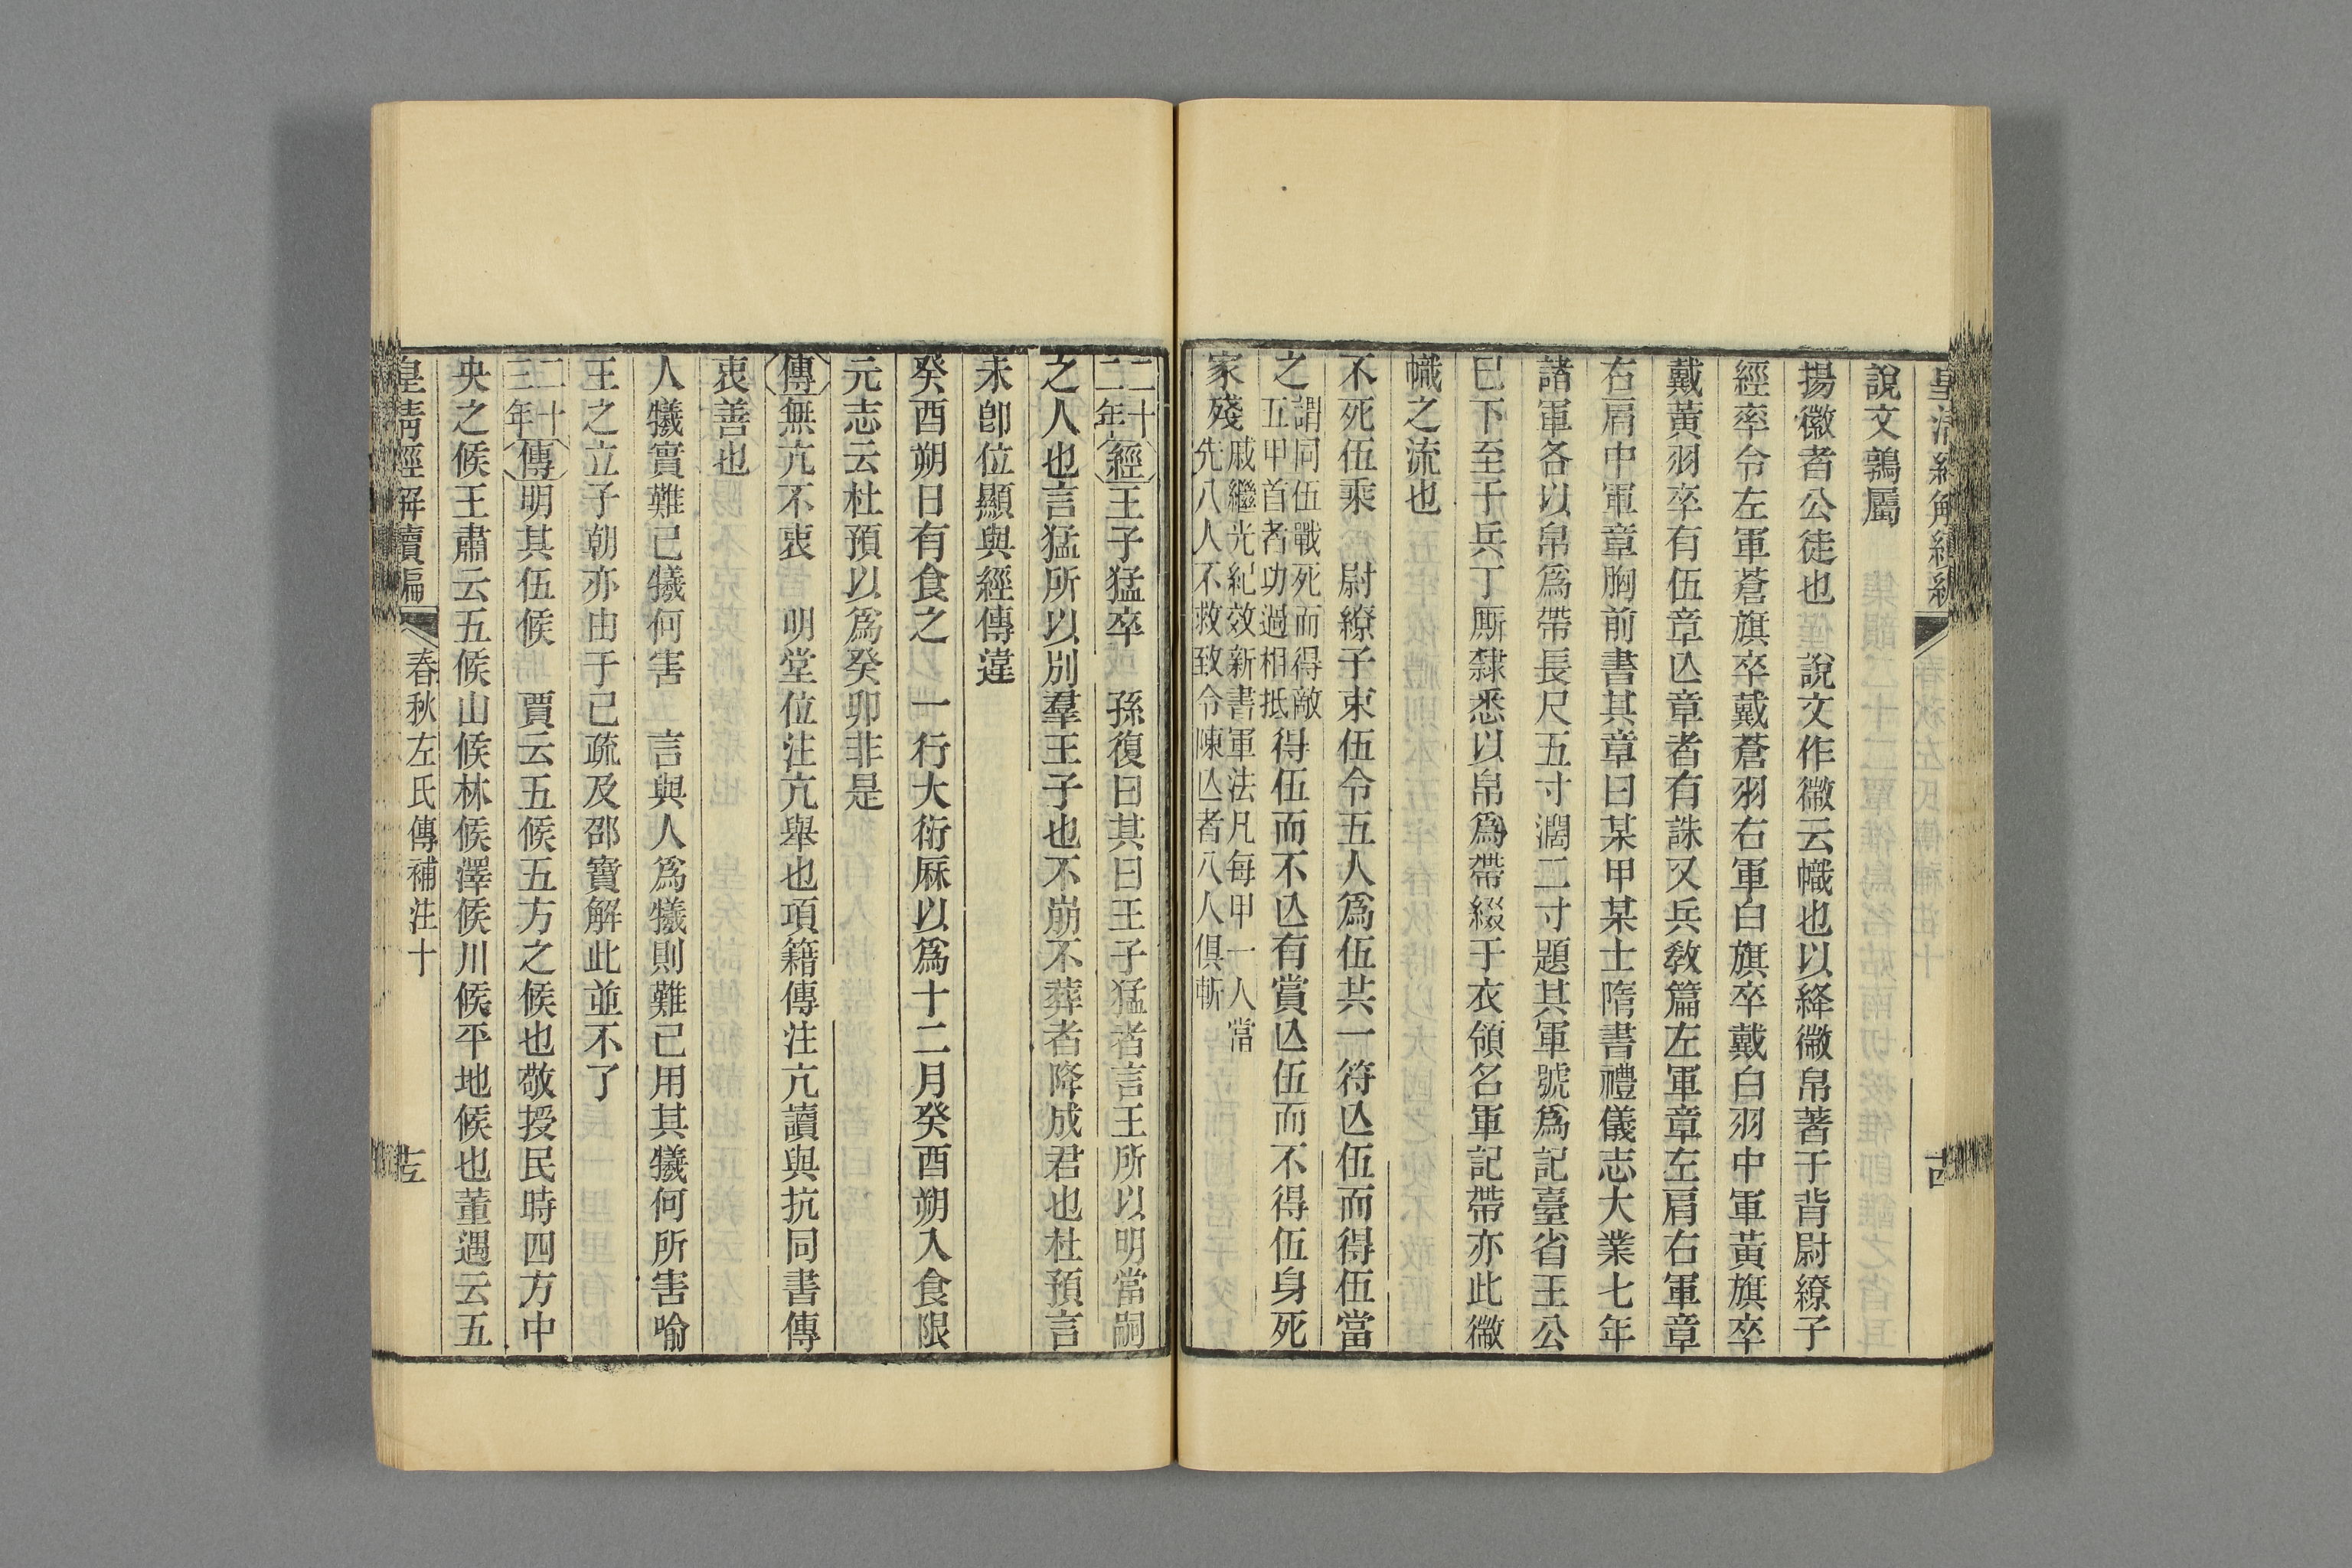 說文鶉屬
揚徽者公徒也 說文作微云幟也以絳微帛著于背尉繚子
經卒令左軍蒼旗卒戴蒼羽右軍白旗卒戴白羽中軍黃旗卒
戴黃羽卒有伍章亾章者有誅又兵敎篇左軍章左肩右軍章
右肩中軍章胸前書其章曰某甲某士隋書禮儀志大業七年
諸軍各以帛爲帶長尺五寸濶二寸題其軍號爲記臺省王公
已下至于兵丁厮隸悉以帛爲帶綴于衣領名軍記帶亦此微
幟之流也
不死伍乘 尉繚子束伍令五人爲伍共一符亾伍而得伍當
之謂同伍戰死而得敵五甲首者功過相抵得伍而不亾有賞亾伍而不得伍身死
家殘戚繼光紀效新書軍法凡每甲一人當先八人不救致令陳亾者八人俱斬
二十二年經王子猛卒 孫復曰其曰王子猛者言王所以明當嗣
之人也言猛所以別羣王子也不崩不葬者降成君也杜預言
未卽位顯與經傳違
癸酉朔日有食之 一行大衍厤以爲十二月癸酉朔入食限
元志云杜預以爲癸卯非是
傳無亢不衷 明堂位注亢舉也項籍傳注亢讀與抗同書傳
衷善也
人犧實難已犧何害 言與人爲犧則難己用其犧何所害喻
王之立子朝亦由于己疏及邵寶解此並不了
二十三年傳明其伍候 賈云五候五方之候也敬授民時四方中
央之候王肅云五候山候林候澤候川候平地候也董遇云五
皇淸經解續編 春秋左氏傳補注十